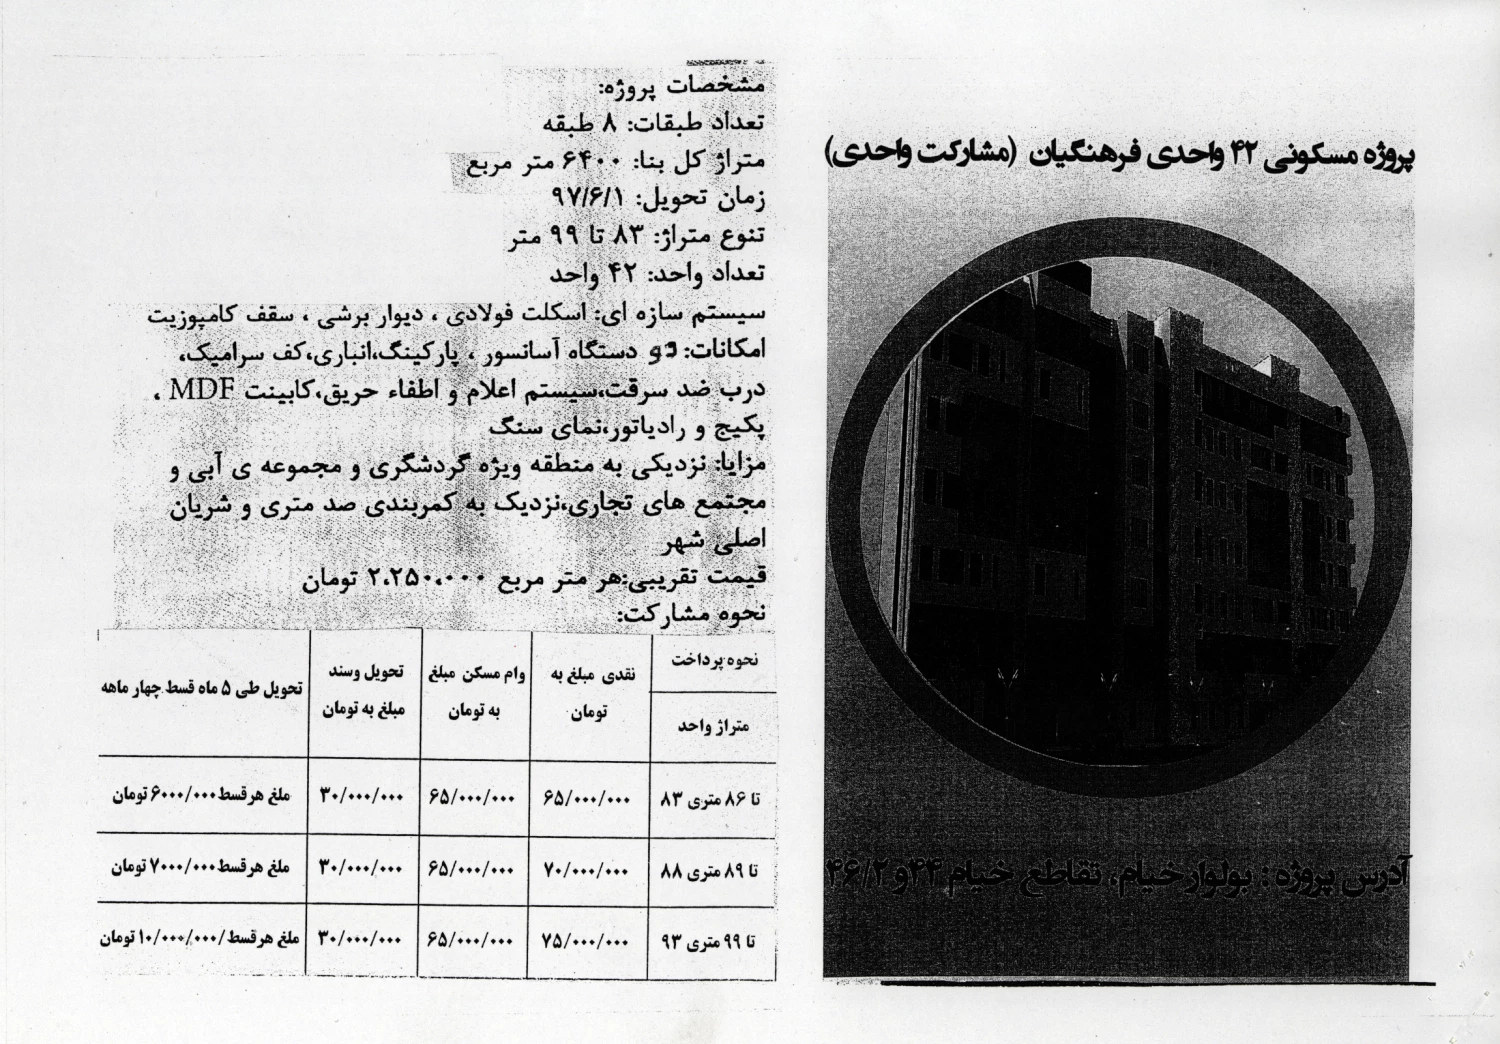 پروژه مسکونی ۴۲ واحدی فرهنگیان (مشارکت واحدی)
آدرس پروژه : بولوار خیام، تقاطع خیام ۴۴و ۴۶/۲
مشخصات پروژه:
تعداد طبقات: ۸ طبقه
متراژ کل بنا: ۶۴۰۰ متر مربع
زمان تحویل: ۹۷/۶/۱
تنوع متراژ: ۸۳ تا ۹۹ متر
تعداد واحد: ۴۲ واحد
سیستم سازه ای: اسکلت فولادی ، دیوار برشی ، سقف کامپوزیت
امکانات: دو دستگاه آسانسور ، پارکینگ،انباری،کف سرامیک،
درب ضد سرقت،سیستم اعلام و اطفاء حریق،کابینت MDF ،
پکیج و رادیاتور،نمای سنگ
مزایا: نزدیکی به منطقه ویژه گردشگری و مجموعه ی آبی و
مجتمع های تجاری،نزدیک به کمربندی صد متری و شریان
اصلی شهر
قیمت تقریبی:هر متر مربع ۲،۲۵۰،۰۰۰ تومان
نحوه مشارکت:
نحوه پرداخت
متراژ واحد
نقدی مبلغ به
تومان
وام مسکن مبلغ
به تومان
تحویل وسند
مبلغ به تومان
تحویل طی ۵ ماه قسط چهار ماهه
تا ۸۶ متری ۸۳ ۶۵/۰۰۰/۰۰۰ ۶۵/۰۰۰/۰۰۰ ۳۰/۰۰۰/۰۰۰ ملغ هرقسط۶۰۰۰/۰۰۰ تومان
تا ۸۹ متری ۸۸ ۷۰/۰۰۰/۰۰۰ ۶۵/۰۰۰/۰۰۰ ۳۰/۰۰۰/۰۰۰ ملغ هرقسط۷۰۰۰/۰۰۰ تومان
تا ۹۹ متری ۹۳ ۷۵/۰۰۰/۰۰۰ ۶۵/۰۰۰/۰۰۰ ۳۰/۰۰۰/۰۰۰ ملغ هرقسط/۱۰/۰۰۰/۰۰۰ تومان